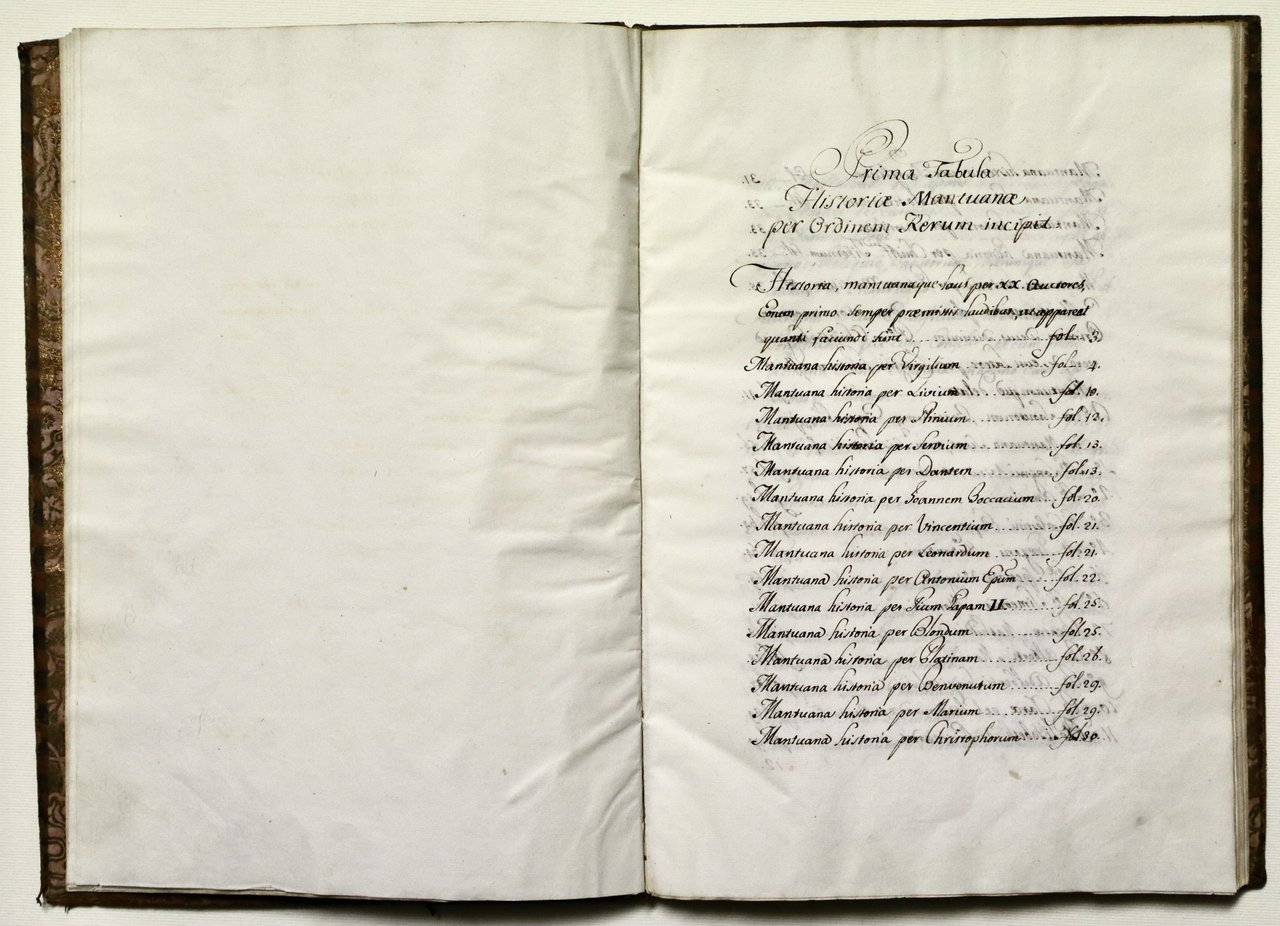 Prima Tabula
Historiæ Mantuanæ
per Ordinem Rerum incipit.
Historia, mantuanaque laus per XX. Auctores,
primo semper præmissis laudibus, ut appareat
quanti faciundi sint . . . . . fol. 3
Mantuana historia per Virgilium . . . . fol. 4.
Mantuana historia per Livium . . . . fol. 10.
Mantuana historia per Plinium . . . . fol. 12.
Mantuana historia per Servium . . . . fol. 13.
Mantuana historia per Dantem . . . . fol. 13.
Mantuana historia per Joannem Boccacium . . . fol. 20.
Mantuana historia per Vincentium . . . . fol. 21.
Mantuana historia per Leonardum . . . . fol. 21.
Mantuana historia per Antonium Epum . . . . fol. 22.
Mantuana historia per Pium Papam II . . . . fol. 25.
Mantuana historia per Blondum . . . . fol. 25.
Mantuana historia per Platinam . . . . fol. 26.
Mantuana historia per Benvenutum . . . . fol. 29.
Mantuana historia per Marium . . . . fol. 29.
Mantuana historia per Christophorum . . . . fol. 30.